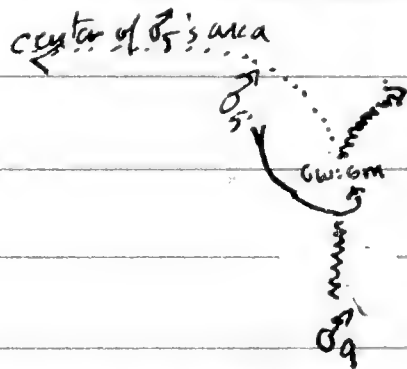 center of ♂5's area
♂5
cw:6m
♂9